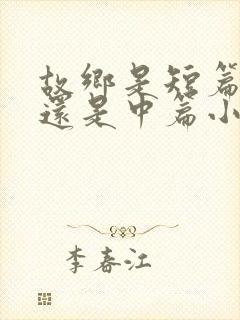 故鄉是短篇
還是中篇小
李春江